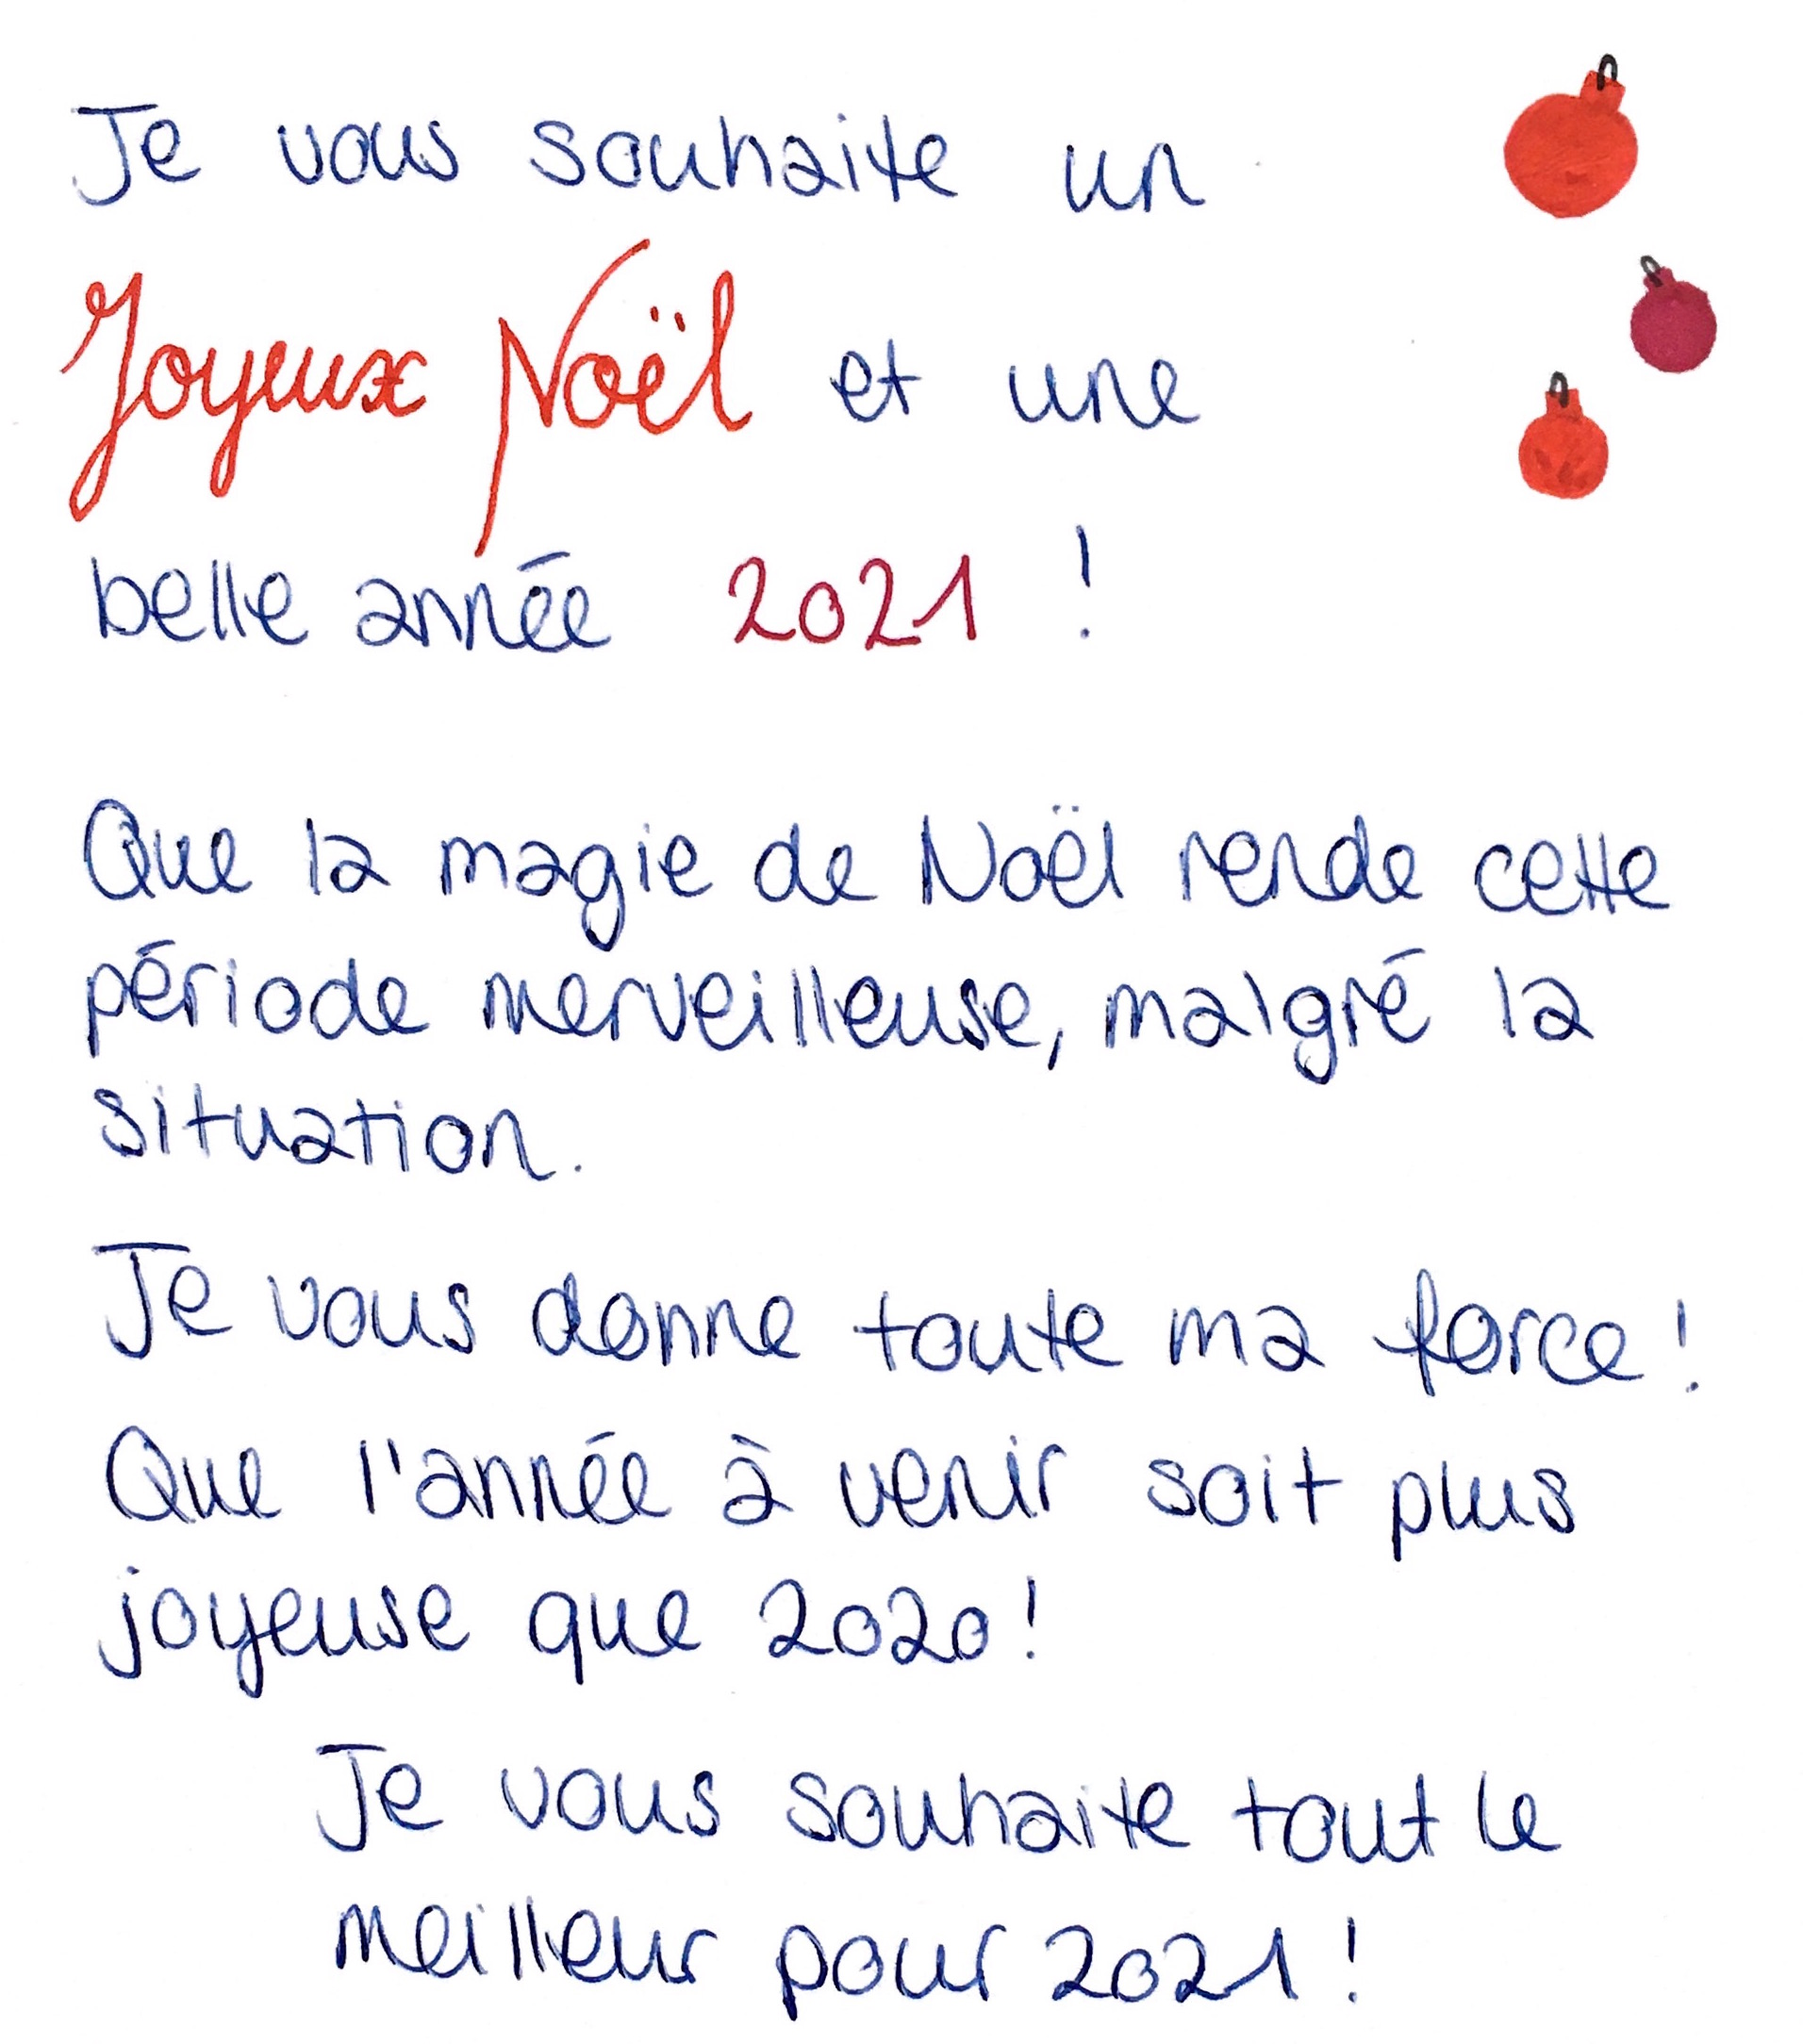 Je vous souhaite un
Joyeux Noël et une
belle année 2021 !
Que la magie de Noël rende cette
période merveilleuse, malgré la
situation.
Je vous donne toute ma force !
Que l'année à venir soit plus
joyeuse que 2020 !
Je vous souhaite tout le
meilleur pour 2021 !